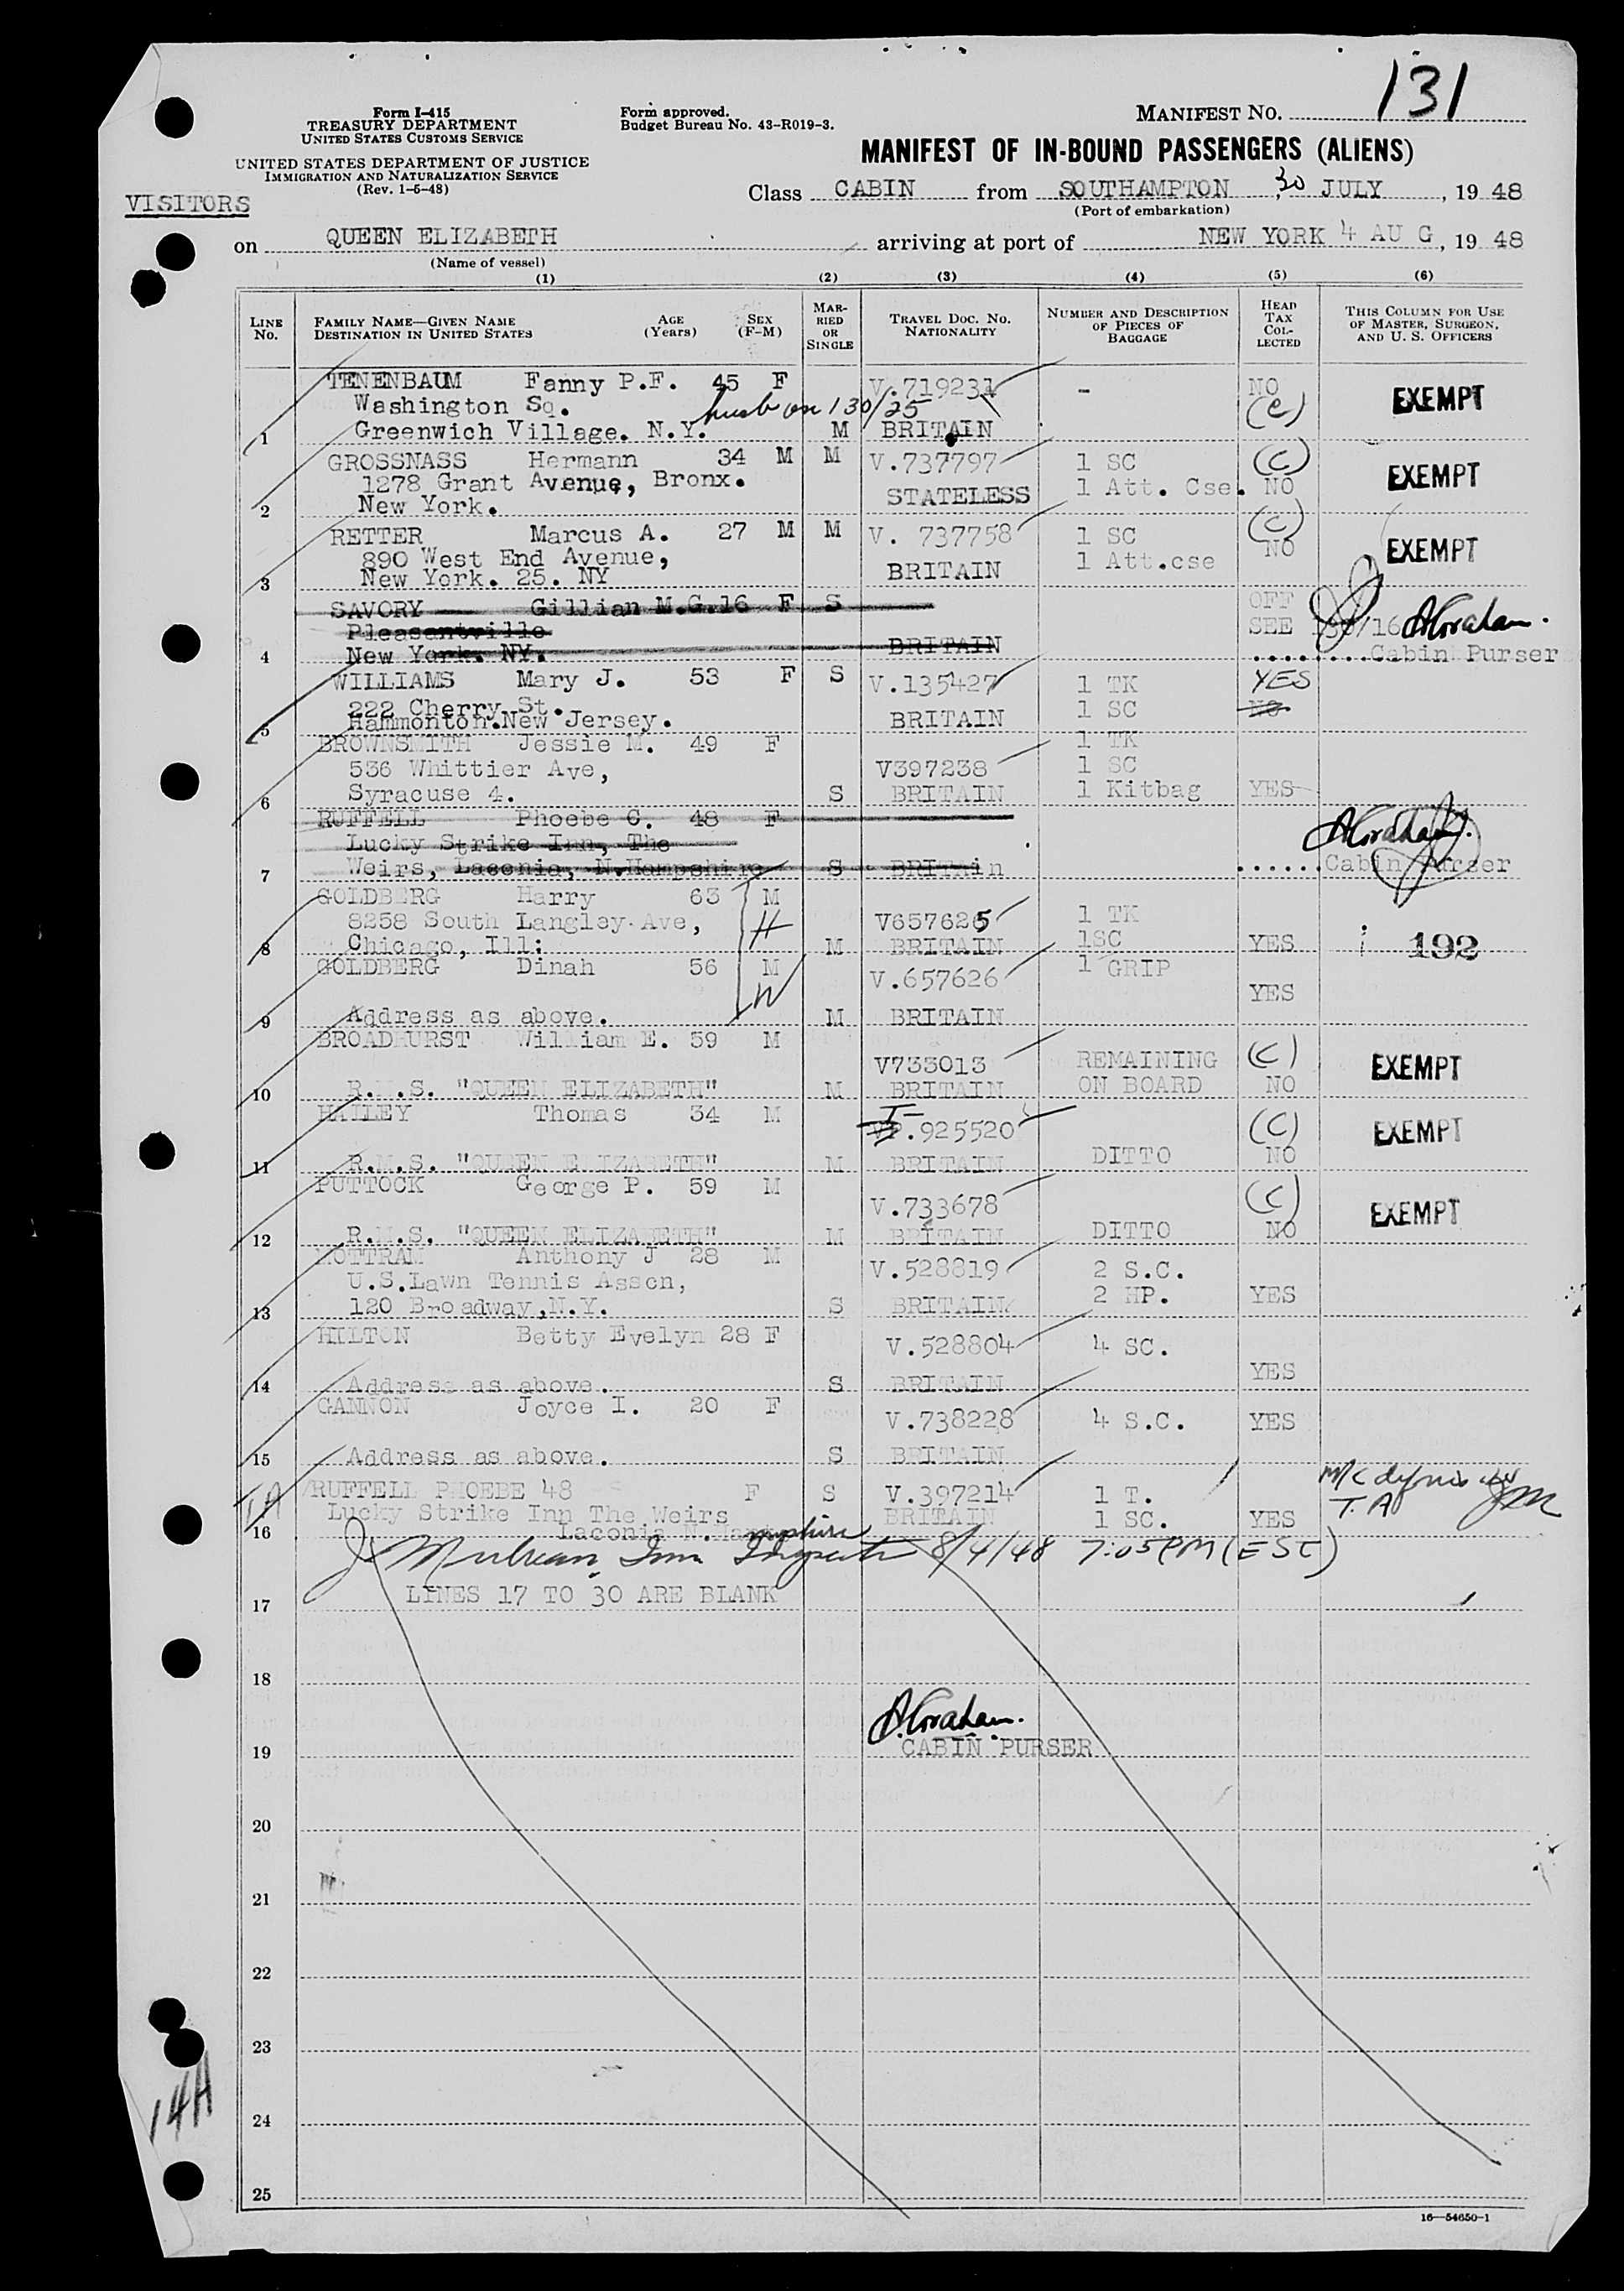 131
Form I-415
TREASURY DEPARTMENT
UNITED STATES CUSTOMS SERVICE
UNITED STATES DEPARTMENT OF JUSTICE
IMMIGRATION AND NATURALIZATION SERVICE
(Rev. 1-5-48)
Form approved.
Budget Bureau No. 43-R019-3.
MANIFEST NO.
MANIFEST OF IN-BOUND PASSENGERS (ALIENS)
VISITORS
Class CABIN from SOUTHAMPTON, 30 JULY, 19 48
(Port of embarkation)
on QUEEN ELIZABETH arriving at port of NEW YORK 4 AUG, 19 48
(Name of vessel)
(1) (2) (3) (4) (5) (6)
LINE NO. FAMILY NAME—GIVEN NAME DESTINATION IN UNITED STATES AGE (Years) SEX (F-M) MARRIED OR SINGLE TRAVEL DOC. NO. NATIONALITY NUMBER AND DESCRIPTION OF PIECES OF BAGGAGE HEAD TAX COLLECTED THIS COLUMN FOR USE OF MASTER, SURGEON, AND U. S. OFFICERS
TENENBAUM Fanny P.F. 45 F V.719231 - NO EXEMPT
Washington Sq. husb on 130/25 (c)
1 Greenwich Village. N.Y. M BRITAIN
GROSSNASS Hermann 34 M M V.737797 1 SC (C) EXEMPT
1278 Grant Avenue, Bronx. STATELESS 1 Att. Cse. NO
2 New York.
RETTER Marcus A. 27 M M V. 737758 1 SC (C) EXEMPT
890 West End Avenue, BRITAIN 1 Att.cse NO
3 New York. 25. NY
SAVORY Gillian M.G. 16 F S OFF
Pleasantville SEE 130/16
4 New York. NY. BRITAIN ........Cabin Purser
WILLIAMS Mary J. 53 F S V.135427 1 TK YES
222 Cherry St. 1 SC NO
5 Hammonton.New Jersey. BRITAIN
BROWNSMITH Jessie M. 49 F 1 TK
536 Whittier Ave, V397238 1 SC
6 Syracuse 4. S BRITAIN 1 Kitbag YES
RUFFELL Phoebe C. 48 F
Lucky Strike Inn, The
7 Weirs, Laconia, N.Hampshire S BRITAin ......Cabin Purser
GOLDBERG Harry 63 M
8258 South Langley Ave, H V657625 1 TK
8 Chicago, Ill: M BRITAIN 1SC YES 192
GOLDBERG Dinah 56 M V.657626 1 GRIP
W YES
9 Address as above. M BRITAIN
BROADHURST William E. 59 M
V733013 REMAINING (C) EXEMPT
10 R.M.S. "QUEEN ELIZABETH" M BRITAIN ON BOARD NO
HAILEY Thomas 34 M
.925520 (C) EXEMPT
11 R.M.S. "QUEEN ELIZABETH" M BRITAIN DITTO NO
PUTTOCK George P. 59 M
V.733678 (C) EXEMPT
12 R.M.S. "QUEEN ELIZABETH" M BRITAIN DITTO NO
MOTTRAM Anthony J 28 M V.528819 2 S.C.
U.S.Lawn Tennis Asscn,
13 120 Broadway,N.Y. S BRITAIN 2 HP. YES
HILTON Betty Evelyn 28 F V.528804 4 SC.
YES
14 Address as above. S BRITAIN
GANNON Joyce I. 20 F V.738228 4 S.C. YES
15 Address as above. S BRITAIN
RUFFELL PHOEBE 48 F S V.397214 1 T.
Lucky Strike Inn The Weirs BRITAIN 1 SC. YES T.A
16 Laconia N. Hampshire
8/4/48 7:05PM (EST)
17 LINES 17 TO 30 ARE BLANK
18
19 CABIN PURSER
20
21
22
23
24
25
14A
16—54650-1